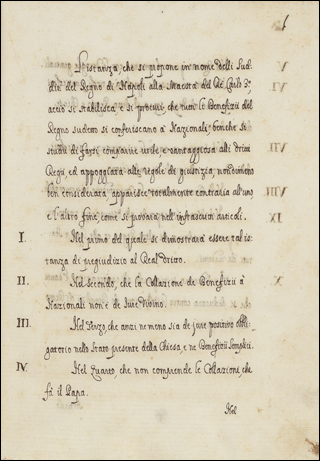 L'istanza, che si propone in nome delli Sud-
diti del Regno di Napoli alla Maestà del Re Carlo 3º,
acciò si stabilisca e si procuri che tutti li Benefizii del
Regno sudetto si conferiscano à Nazionali, benche si
studii di farsi comparire utile e vantaggiosa alli dritti
Regii, ed appoggiata alle regole di giustizia, nondimeno
ben considerata apparisce totalmente contraria all'uno
e l'altro fine, come si provarà nell'infrascritti articoli.
I. Nel primo del quale si dimostrarà essere tal is-
tanza di pregiudizio al Real dritto.
II. Nel secondo, che la Collazione de Benefizii à
Nazionali non è de Jure Divino.
III. Nel Terzo, che anzi ne meno sia de jure positivo obli-
gatorio nello stato presente della Chiesa, e ne Benefizii semplici.
IV. Nel Quarto, che non comprende le Collazione, che
fà il Papa.
Nel